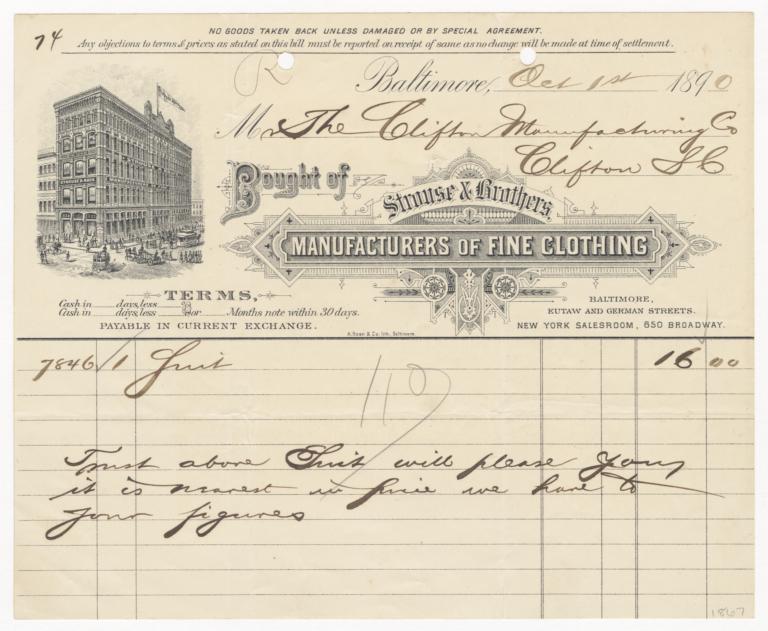 NO GOODS TAKEN BACK UNLESS DAMAGED OR BY SPECIAL AGREEMENT.
74 Any objections to terms & prices as stated on this bill must be reported on receipt of same as no change will be made at time of settlement.
R
Baltimore, Oct 1st 1890
M The Clifton Manufacturing Co
Clifton S C
Bought of Strouse & Brothers,
MANUFACTURERS OF FINE CLOTHING
TERMS,
Cash in days, less
Cash in days, less or Months note within 30 days.
PAYABLE IN CURRENT EXCHANGE.
BALTIMORE,
EUTAW AND GERMAN STREETS.
NEW YORK SALESROOM, 650 BROADWAY.
A. Hoen & Co. lith. Baltimore.
7846 1 Suit 16 00
110
Trust above Suit will please you,
it is nearest in price we have to
your figures
1867